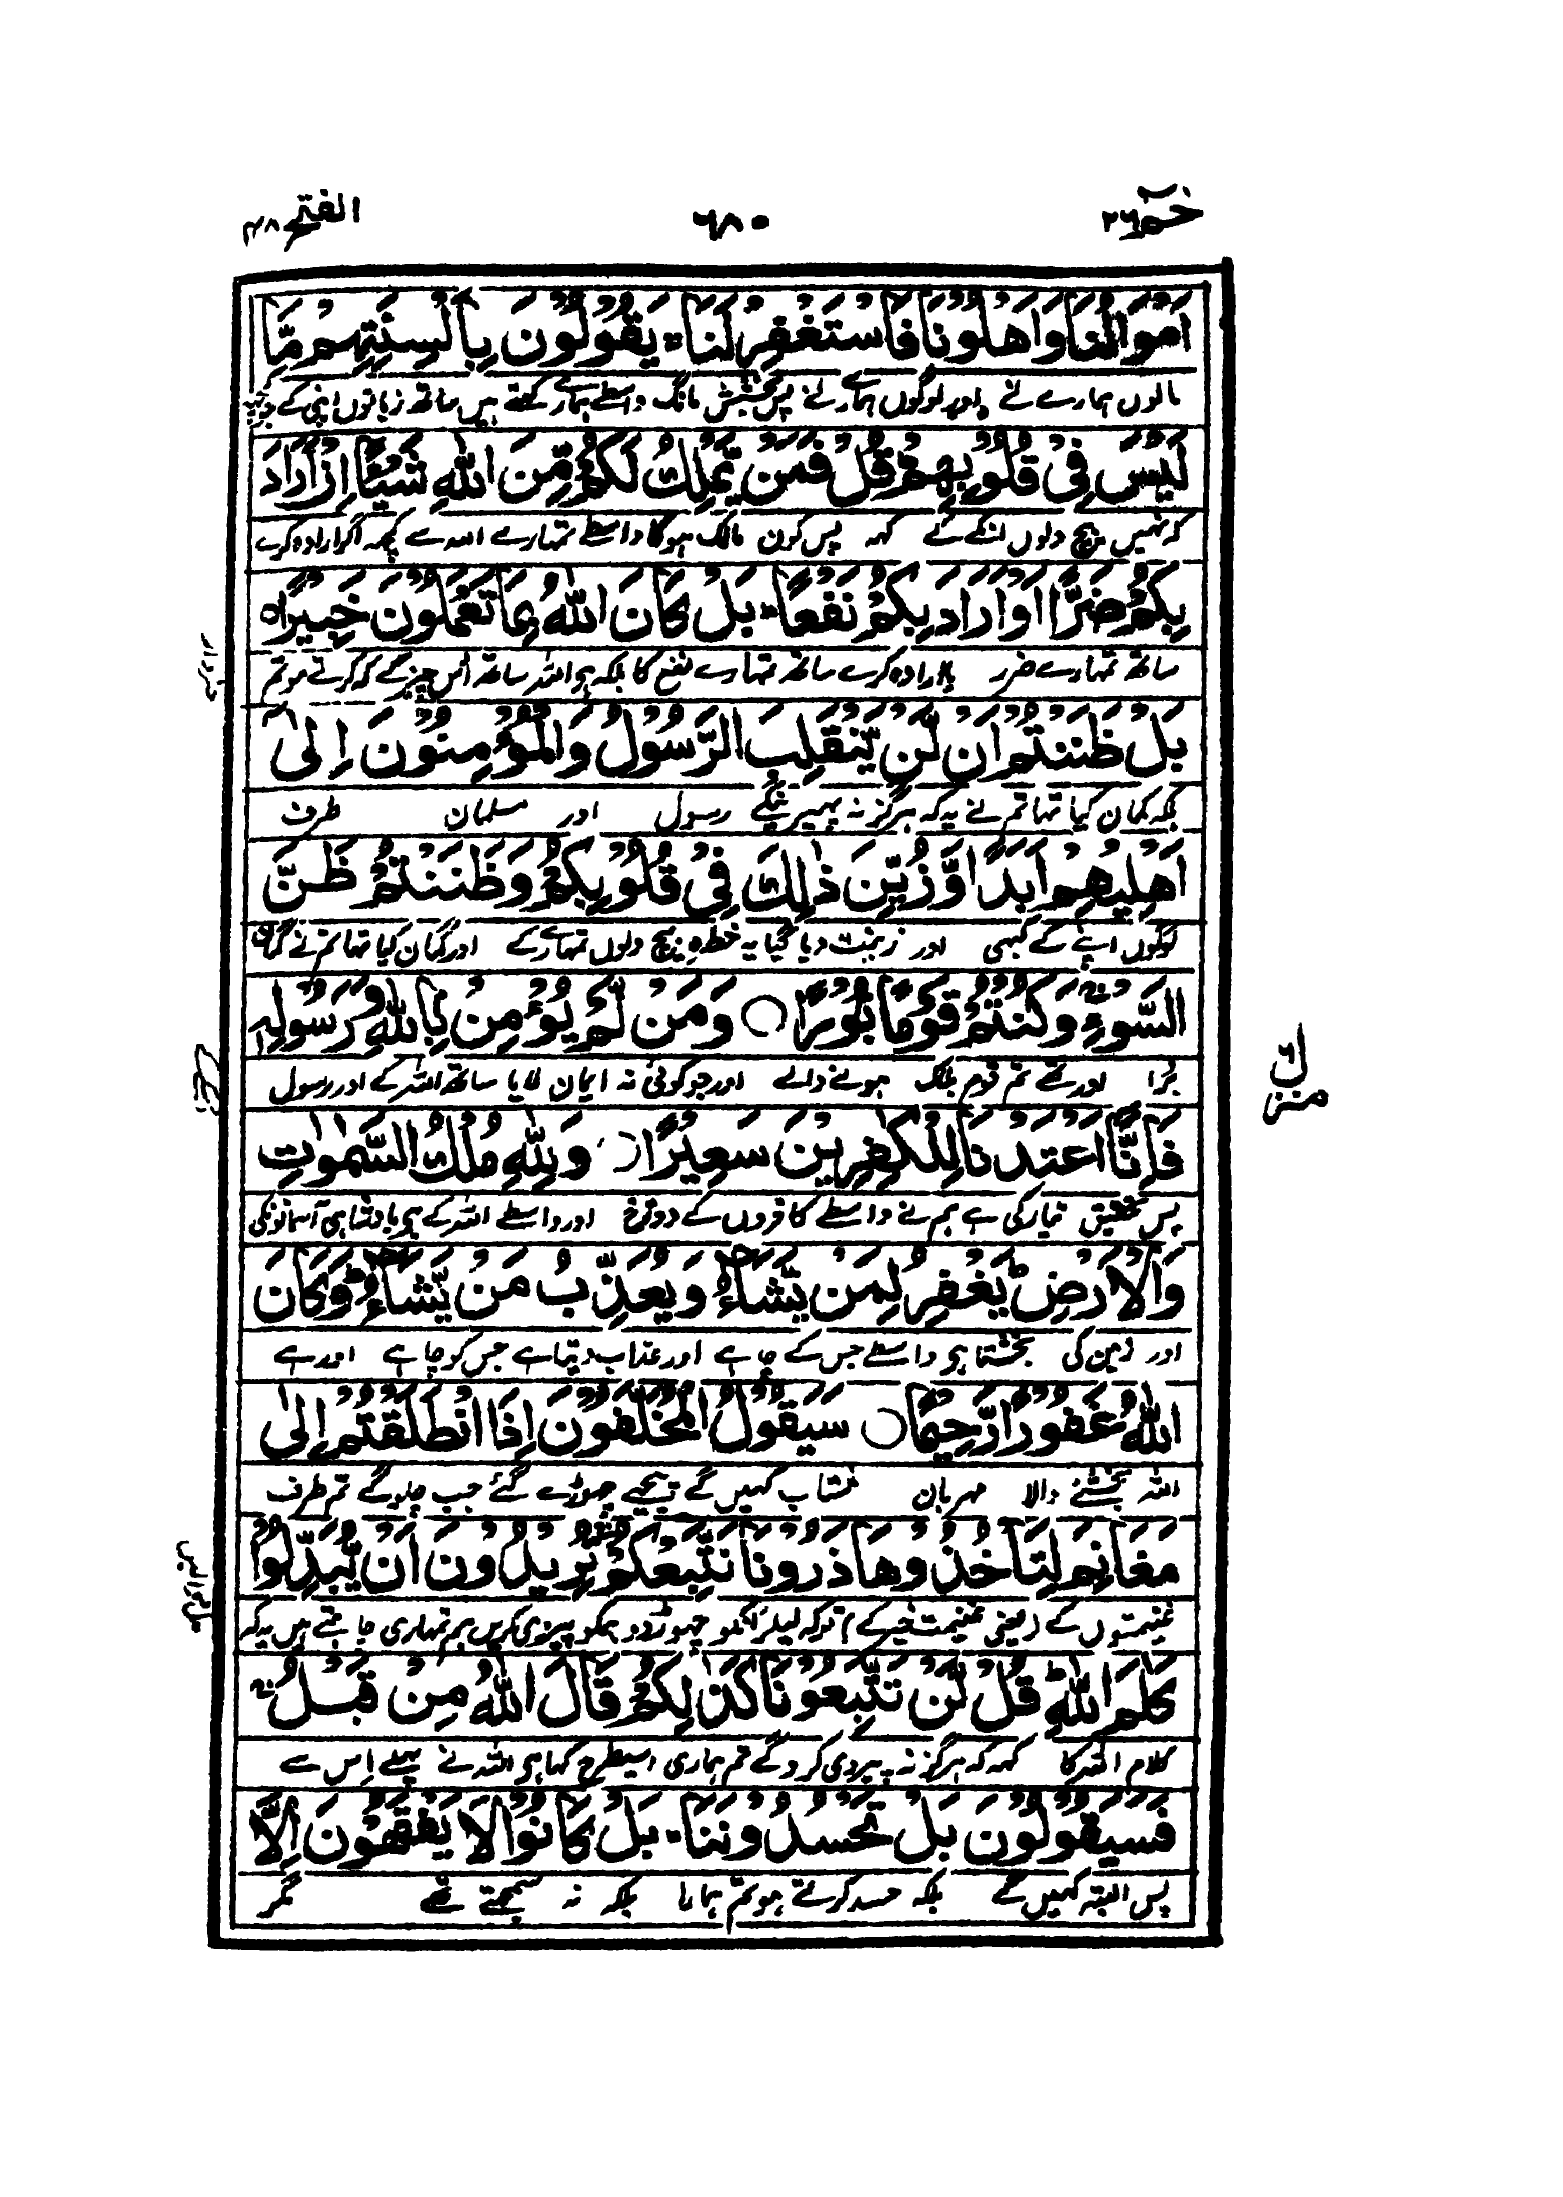 حٰمٓ ٢٦ ٦٨٠ الفتح ٤٨
اَمْوَالُنَا وَاَهْلُوْنَا فَاسْتَغْفِرْ لَنَا ۚ يَقُوْلُوْنَ بِاَلْسِنَتِهِمْ مَّا
مالوں ہمارے نے اور لوگوں ہمارے نے پس بخشش مانگ واسطے ہمارے کہتے ہیں ساتھ زبانوں اپنی کے
لَيْسَ فِيْ قُلُوْبِهِمْ ؕ قُلْ فَمَنْ يَّمْلِكُ لَكُمْ مِّنَ اللّٰهِ شَيْئًا اِنْ اَرَادَ
کہ نہیں بیچ دلوں انکے کے کہہ پس کون مالک ہوگا واسطے تمہارے اللہ سے کچھ اگر ارادہ کرے
بِكُمْ ضَرًّا اَوْ اَرَادَ بِكُمْ نَفْعًا ؕ بَلْ كَانَ اللّٰهُ بِمَا تَعْمَلُوْنَ خَبِيْرًا ○
ساتھ تمہارے ضرر یا ارادہ کرے ساتھ تمہارے نفع کا بلکہ ہی اللہ ساتھ اُس چیز کے کہ کرتے ہو تم
بَلْ ظَنَنْتُمْ اَنْ لَّنْ يَّنْقَلِبَ الرَّسُوْلُ وَالْمُؤْمِنُوْنَ اِلٰٓى
بلکہ گمان کیا تھا تم نے یہ کہ ہرگز نہ پھیرینگے رسول اور مسلمان طرف
اَهْلِيْهِمْ اَبَدًا وَّزُيِّنَ ذٰلِكَ فِيْ قُلُوْبِكُمْ وَظَنَنْتُمْ ظَنَّ
لوگوں اپنے کے کبھی اور زینت دیا گیا یہ خطرہ بیچ دلوں تمہارے کے اور گمان کیا تھا تم نے گمان
السَّوْءِ ۚ وَكُنْتُمْ قَوْمًا بُوْرًا ○ وَمَنْ لَّمْ يُؤْمِنْ بِاللّٰهِ وَرَسُوْلِهٖ
بُرا اور تھے تم قوم ہلاک ہونے والے اور جو کوئی نہ ایمان لایا ساتھ اللہ کے اور رسول
فَاِنَّآ اَعْتَدْنَا لِلْكٰفِرِيْنَ سَعِيْرًا ○ وَلِلّٰهِ مُلْكُ السَّمٰوٰتِ
پس تحقیق تیار کی ہے ہم نے واسطے کافروں کے دوزخ اور واسطے اللہ کے ہی بادشاہی آسمانونکی
وَالْاَرْضِ ؕ يَغْفِرُ لِمَنْ يَّشَآءُ وَيُعَذِّبُ مَنْ يَّشَآءُ ؕ وَكَانَ
اور زمین کی بخشتا ہی واسطے جس کے چاہے اور عذاب دیتا ہے جس کو چاہے اور ہے
اللّٰهُ غَفُوْرًا رَّحِيْمًا ○ سَيَقُوْلُ الْمُخَلَّفُوْنَ اِذَا انْطَلَقْتُمْ اِلٰى
اللہ بخشنے والا مہربان شتاب کہیں گے پیچھے چھوڑے گئے جب چلو گے تم طرف
مَغَانِمَ لِتَاْخُذُوْهَا ذَرُوْنَا نَتَّبِعْكُمْ ۚ يُرِيْدُوْنَ اَنْ يُّبَدِّلُوْا
غنیمتوں کے (یعنی غنیمت خیبر کے) توکہ لیلو انکو چھوڑ دو ہمکو پیروی کریں ہم تمہاری چاہتے ہیں یہ کہ
كَلٰمَ اللّٰهِ ؕ قُلْ لَّنْ تَتَّبِعُوْنَا كَذٰلِكُمْ قَالَ اللّٰهُ مِنْ قَبْلُ ۚ
کلام اللہ کا کہہ کہ ہرگز نہ پیروی کرو گے تم ہماری اسیطرح کہا ہی اللہ نے پہلے اِس سے
فَسَيَقُوْلُوْنَ بَلْ تَحْسُدُوْنَنَا ؕ بَلْ كَانُوْا لَا يَفْقَهُوْنَ اِلَّا
پس البتہ کہیں گے بلکہ حسد کرتے ہو تم ہمارا بلکہ نہ سمجھتے تھے مگر
منزل ٦